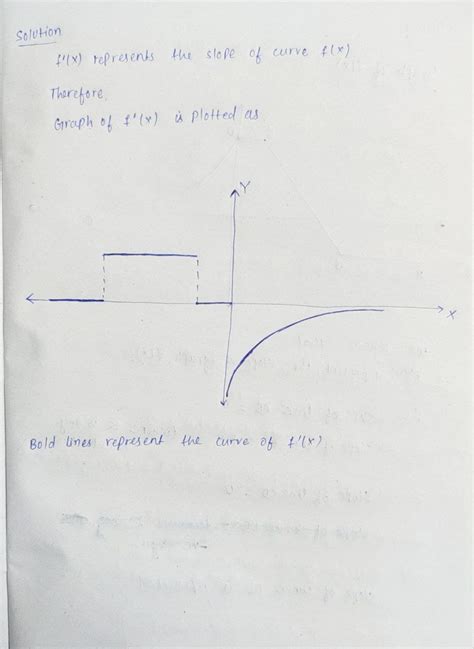 Solution
f'(x) represents the slope of curve f(x)
Therefore,
Graph of f'(x) is plotted as
Y
X
Bold lines represent the curve of f'(x)